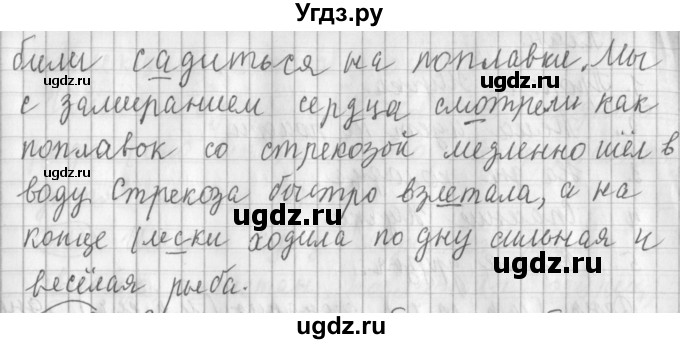 Угдз.ру
били садиться на поплавки. Мы
с замиранием сердца смотрели как
поплавок со стрекозой медленно шёл в
воду. Стрекоза быстро взлетала, а на
конце лески ходила по дну сильная и
весёлая рыба.
ugdz.ru
ugdz.ru
ugdz.ru
ugdz.ru
ugdz.ru
ugdz.ru
ugdz.ru